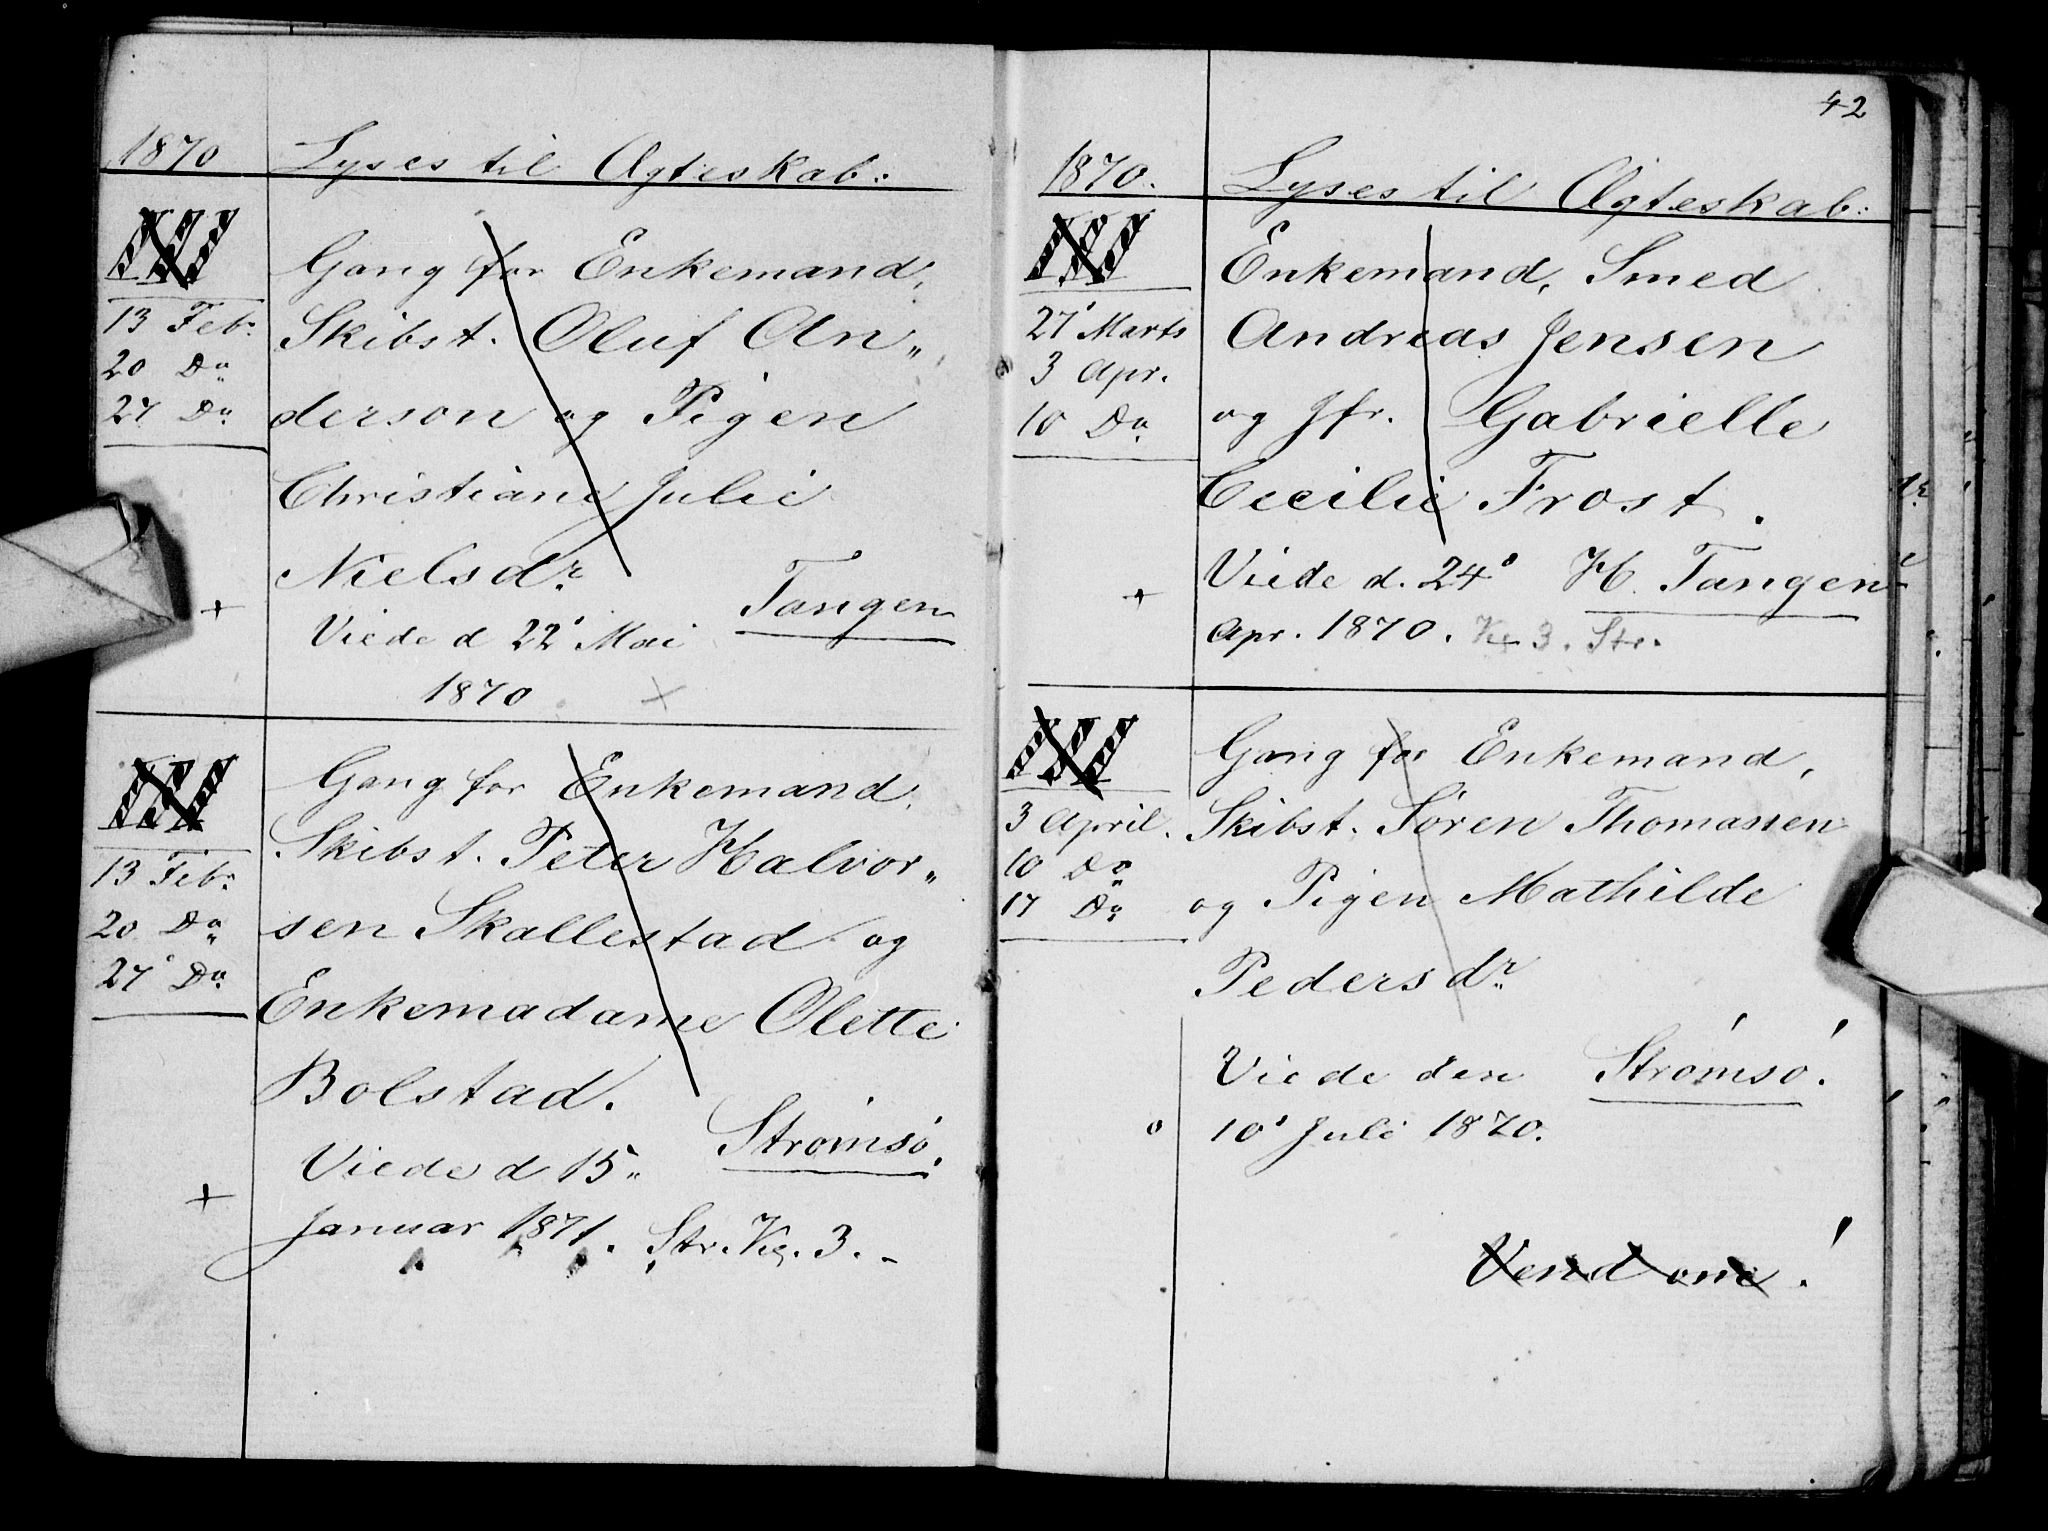 1870 Lyses til Ægteskab:
I II III
Gang for Enkemand,
13 Febr. Skibst. Oluf An„
20 Do
27 Do derson og Pigen
Christiane Julie
Nielsdr. Tangen
+ Viede d 22' Mai
1870 +
I II III
Gang for Enkemand,
Skibst. Peter Halvor„
13 Febr.
20 Do sen Skallestad og
27' Do
Enkemadame Olette
Bolstad.
Viede d 15„ Strømsø.
+
Januar 1871. Str. Kg. 3. -
42
1870. Lyses til Ægteskab:
I II III
Enkemand, Smed
27' Marts Andreas Jensen
3 Apr.
10 Do og Jfr. Gabrielle
Cecilie Frost.
+ Viede d. 24' H. Tangen
Apr. 1870. Kg 3. Str.
I II III
Gang for Enkemand,
3 April. Skibst. Søren Thomassen
10 Do
17 Do og Pigen Mathilde
Pedersdr.
Viede den Strømsø!
o 10' Juli 1870.
Vend om!